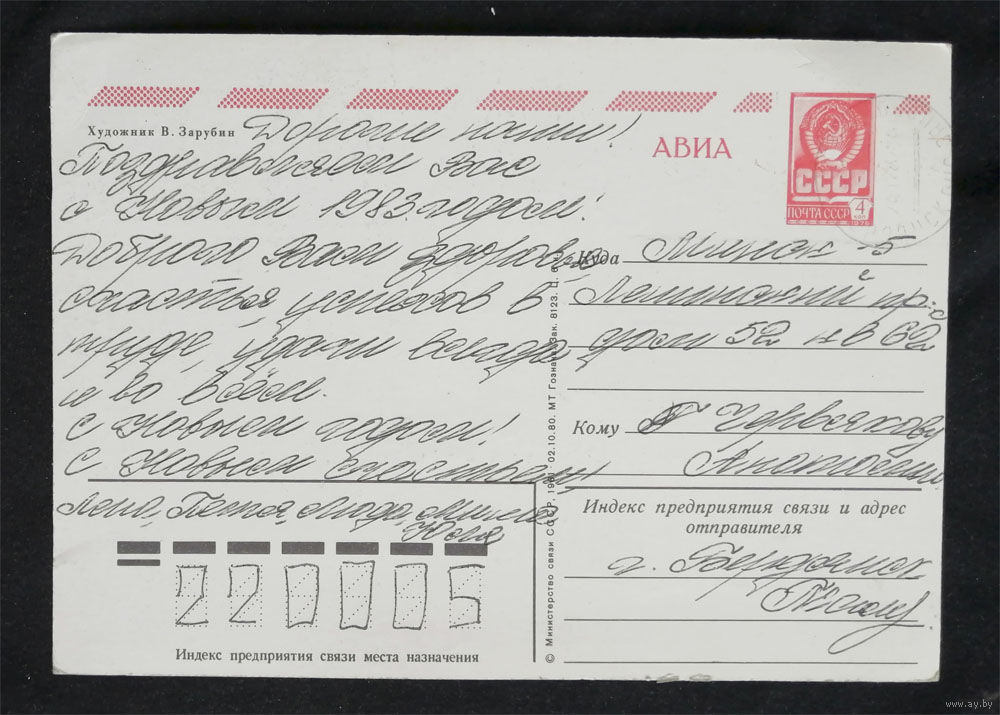 Художник В. Зарубин
Дорогие наши!
Поздравляем Вас
с Новым 1983 годом!
Доброго Вам здоровья
счастья, успехов в
труде, удачи всегда
и во всём.
С Новым годом!
С Новым счастьем!
Лена, Петя, Люда,
Юля
АВИА
СССР
ПОЧТА СССР
4
КОП
1976
Куда Минск-5
Ленинский пр-с
дом 52 кв 62
Кому Червякову
Анатолию
Индекс предприятия связи и адрес
отправителя
г. Бердянск
220005
Индекс предприятия связи места назначения
© Министерство связи СССР, 1981. 02.10.80. МТ Гознака. Зак. 8123. Ц. 6 к.
www.ay.by